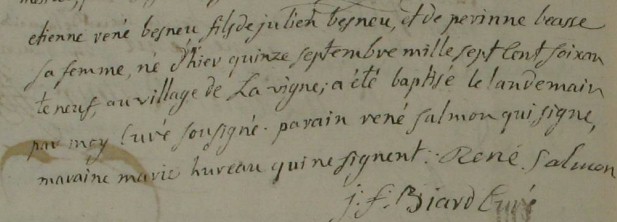 etienne rené besneu fils de julien besneu, et de perinne beasse
sa femme, né d'hier quinze septembre mille sept cent soixan
te neuf, au village de La vigne; a été baptisé le landemain
par moy Curé sousigné. parain rené salmon qui signe,
maraine marie hureau qui ne signent: René Salmon
j: f: Biard Curé